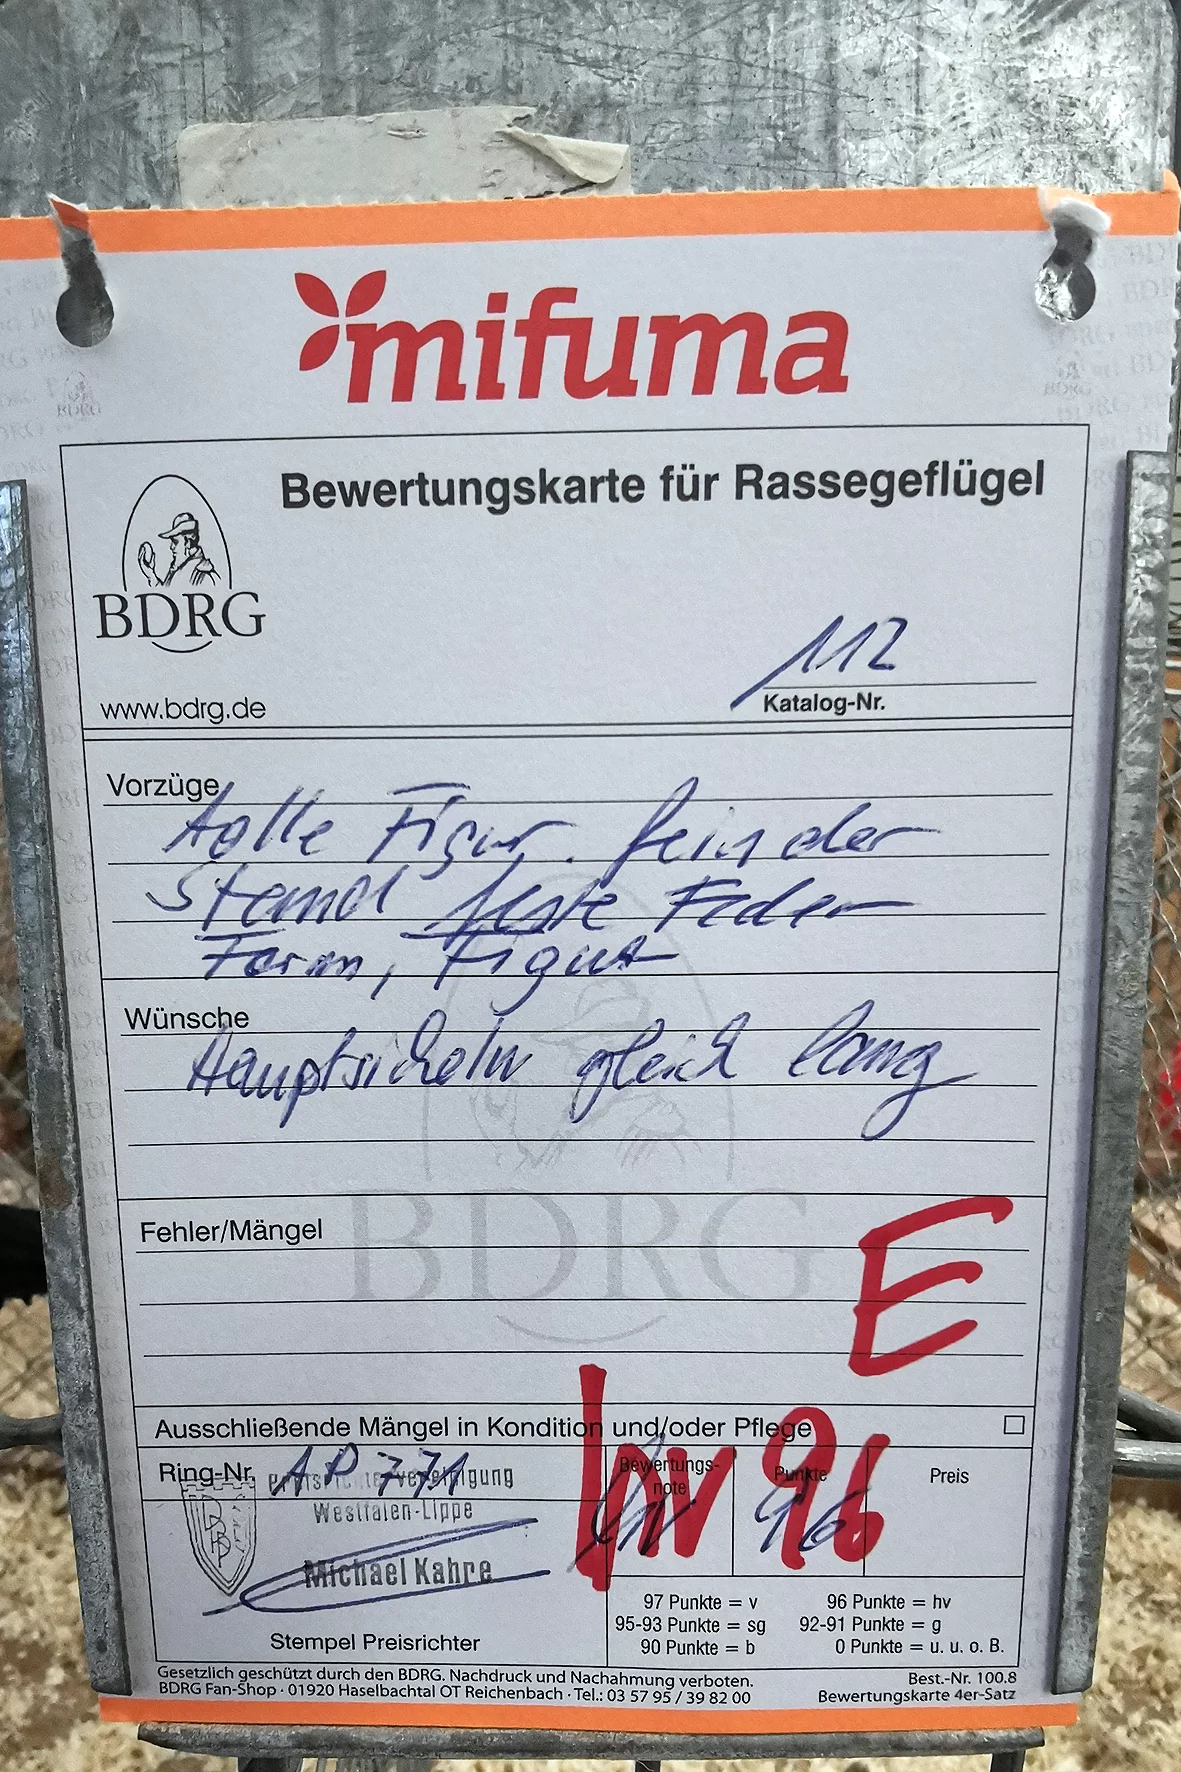 mifuma
Bewertungskarte für Rassegeflügel
BDRG
112
www.bdrg.de
Katalog-Nr.
Vorzüge
Figur. feinder
Stand feste Feder
Form, Figur
Wünsche
Hauptsicheln gleich lang
BDRG
Fehler/Mängel
E
Ausschließende Mängel in Kondition und/oder Pflege
Ring-Nr. AP 771
Preisrichtervereinigung
Westfalen-Lippe
Michael Kahre
Stempel Preisrichter
Bewertungs-
note
Punkte
Preis
hv 96
hv 96
97 Punkte = v 96 Punkte = hv
95-93 Punkte = sg 92-91 Punkte = g
90 Punkte = b 0 Punkte = u. u. o. B.
Gesetzlich geschützt durch den BDRG. Nachdruck und Nachahmung verboten.
BDRG Fan-Shop · 01920 Haselbachtal OT Reichenbach · Tel.: 03 57 95 / 39 82 00
Best.-Nr. 100.8
Bewertungskarte 4er-Satz